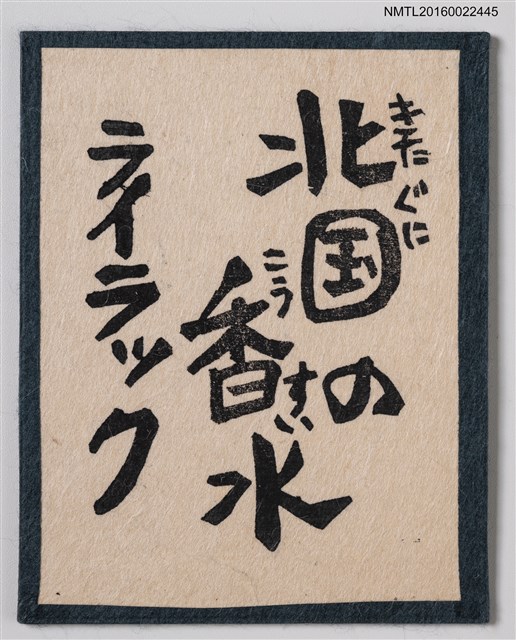 NMTL20160022445
北国の
きたぐに
香水
こうすい
ライラック